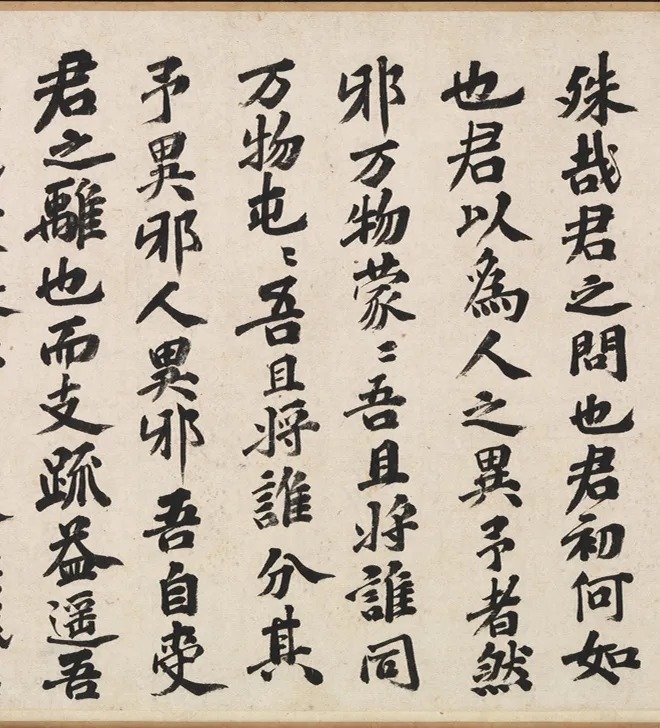 殊哉君之問也君初何如
也君以為人之異予者然
邪万物蒙〻吾且将誰同
万物屯〻吾且将誰分其
予異邪人異邪吾自變
君之離也而支疏益遥吾